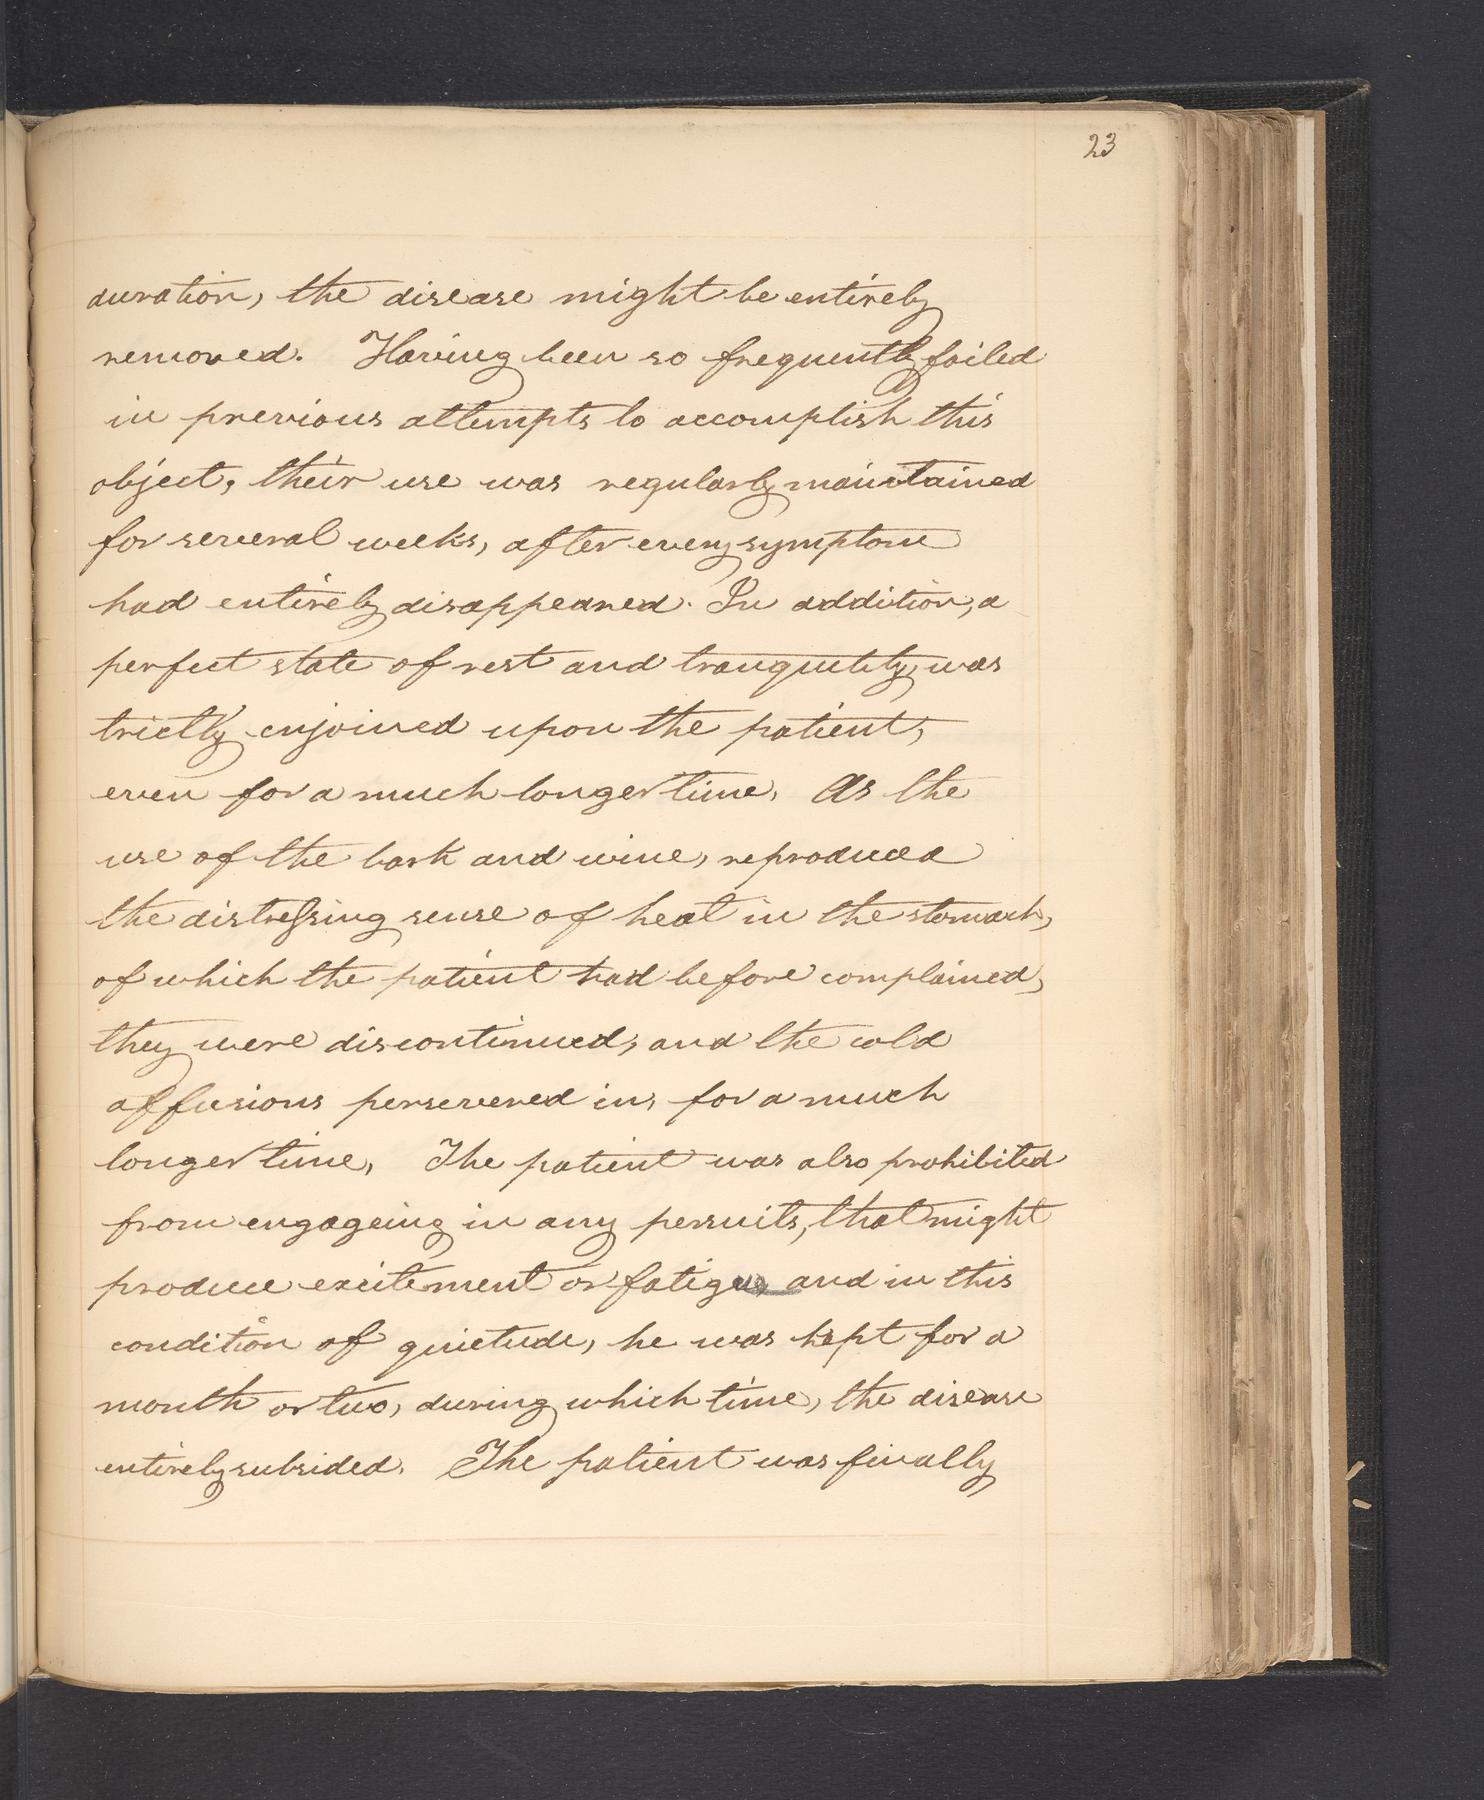 23
duration, the disease might be entirely
removed. Having been so frequently foiled
in previous attempts to accomplish this
object, their use was regularly maintained
for several weeks, after every symptom
had entirely disappeared. In addition, a
perfect state of rest and tranquility was
trictly enjoined upon the patient,
even for a much longer time. As the
use of the bark and wine, reproduced
the distressing sense of heat in the stomach,
of which the patient had before complained,
they were discontinued, and the cold
affusions persevered in, for a much
longer time. The patient was also prohibited
from engageing in any persuits, that might
produce excitement or fatigue, and in this
condition of quietude, he was kept for a
month or two, during which time, the disease
entirely subsided. The patient was finally